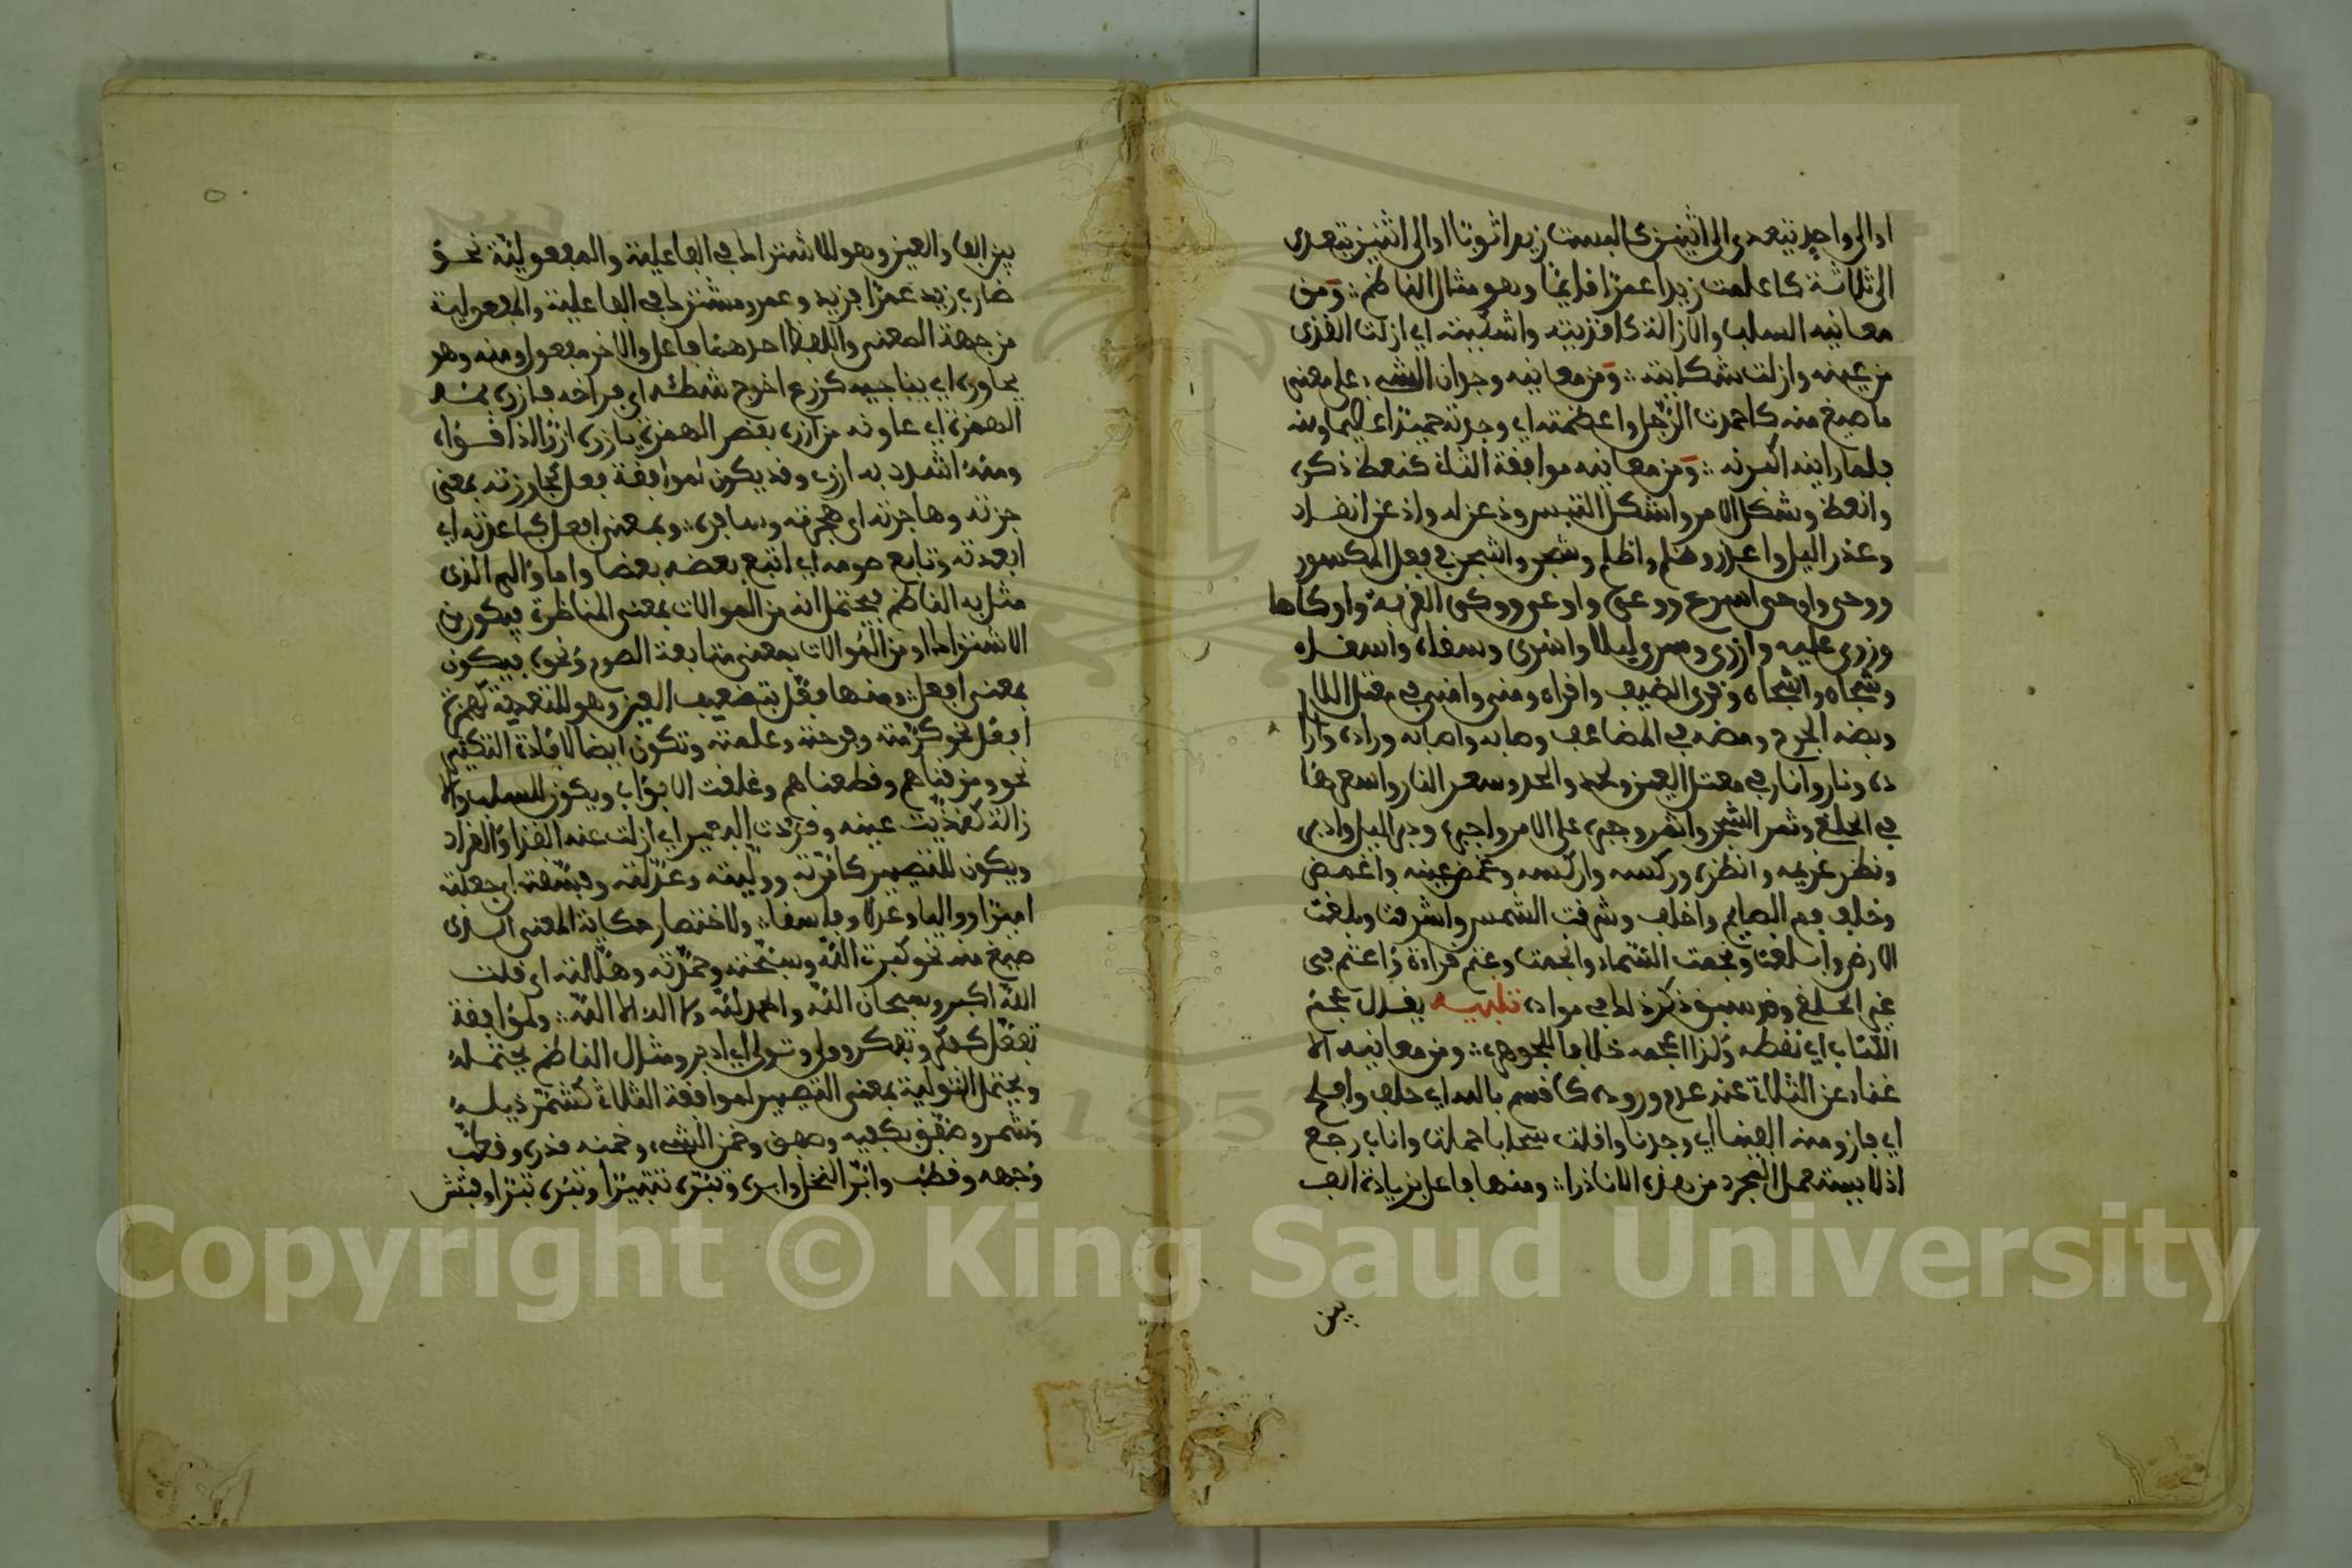 او الى واحد تتعدى الى اثنين كالبست زيدا ثوبا او الى اثنين تتعدى
الى ثلاثة كاعلمت زيدا عمرا قائما وهو مثال الناظم ومن
معانيه السلب والازالة كاقذيته واشكيته اي ازلت القذى
من عينه وازلت شكايته ومن معانيه وجدان الشيء على معنى
ما صيغ منه كاحمدت الرجل واعظمته اي وجدته حميدا عظيما ومنه
فلما راينه اكبرنه ومن معانيه موافقة الثلاثي كنعظ ذكره
وانعظ وشكل الامر واشكل التبس وذعن له واذعن انقاد
وغدر اليل واغدر وظلم واظلم وشجن واشجن في فعل المكسور
ووحى واوحى اسرع ووعى واوعى ووكى القربة واوكاها
وزرى عليه وازرى وسرى ليلا واسرى وسقاه واسقاه
وشجاه واشجاه وقرى الضيف واقراه ومنى وامنى في معتل اللام
وبضه الجرح ومضه في المضاعف وصابه واصابه وراده وارا
ده ونار وانار في معتل العين ولحد والحد وسعر النار واسعرها
في الحلق وثمر الشجر واثمر وجبره على الامر واجبره ودبر اليل وادبر
ونظر غريمه وانظره وركسه واركسه وغمض عينه واغمض
وخلف فم الصايم واخلف وشرقت الشمس واشرقت وبلغت
الارض وابلغت ونجمت السماء وانجمت وعتم قراءة واعتم في
غير الحلق وقد سبق ذكر ذلك في مواده تنبيه يقال عجم
الكتاب اي نقطه وكذا اعجمه خلافا للجوهري ومن معانيه الا
غناء عن الثلاثي عند عدم وروده كاقسم بالله اي حلف وافلح
اي فاز ومنه الفينا اي وجدنا واقلت سحابا حملت واناب رجع
اذ لا يستعمل المجرد من هذه الا نادرا ومنها فاعل بزيادة الف
بين
بين الفاء والعين وهو للاشتراك في الفاعلية والمفعولية نحو
ضارب زيد عمرا فزيد وعمرو مشتركا في الفاعلية والمفعولية
من جهة المعنى واللفظ احدهما فاعل والاخر مفعول ومنه وهو
يحاوره اي يناجيه كزرع اخرج شطئه اي فراخه فازره بمد
الهمزة اي عاونه من ازره بقصر الهمزة يازره ازرا اذا قواه
ومنه اشدد به ازري وقد يكون لموافقة فعل كجاوزته بمعنى
جزته وهاجرته اي هجرته وسافر وبمعنى افعل كباعدته اي
ابعدته وتابع صومه اي اتبع بعضه بعضا واما والى الذي
مثل به الناظم فيحتمل انه من الموالات بمعنى المناظرة فيكون من
الاشتراك او من الموالات بمعنى متابعة الصوم ونحوه فيكون
بمعنى افعل ومنها فعّل بتضعيف العين وهو للتعدية كهمزة
افعل نحو كرّمته وفرحته وعلمته وتكون ايضا لافادة التكثير
نحو ومزقناهم وقطعناهم وغلقت الابواب ويكون للسلب والا
زالة كقذّيت عينه وقردت البعير اي ازلت عنه القذا والقراد
ويكون للتصيير كامّرته وولّيته وعدّلته وفسّقته اي جعلته
اميرا وواليا وعدلا وفاسقا ولاختصار حكاية المعنى الذي
صيغ منه نحو كبرت الله وسبّحته وحمّدته وهلّلته اي قلت
الله اكبر وسبحان الله والحمد لله ولا اله الا الله ولموافقة
تفعّل كفكر وتفكر وولى وتولى اي ادبر ومثال الناظم يحتمله
ويحتمل التولية بمعنى التصيير لموافقة الثلاثي كشمّر ذيله
وشمر وصفّق بكفيه وصفق وخمّن الشيء وخمنه قدره وقطّب
وجهه وقطب وابّر النخل وابره وتبّره تتبيرا وتبره تبرا وفتّش